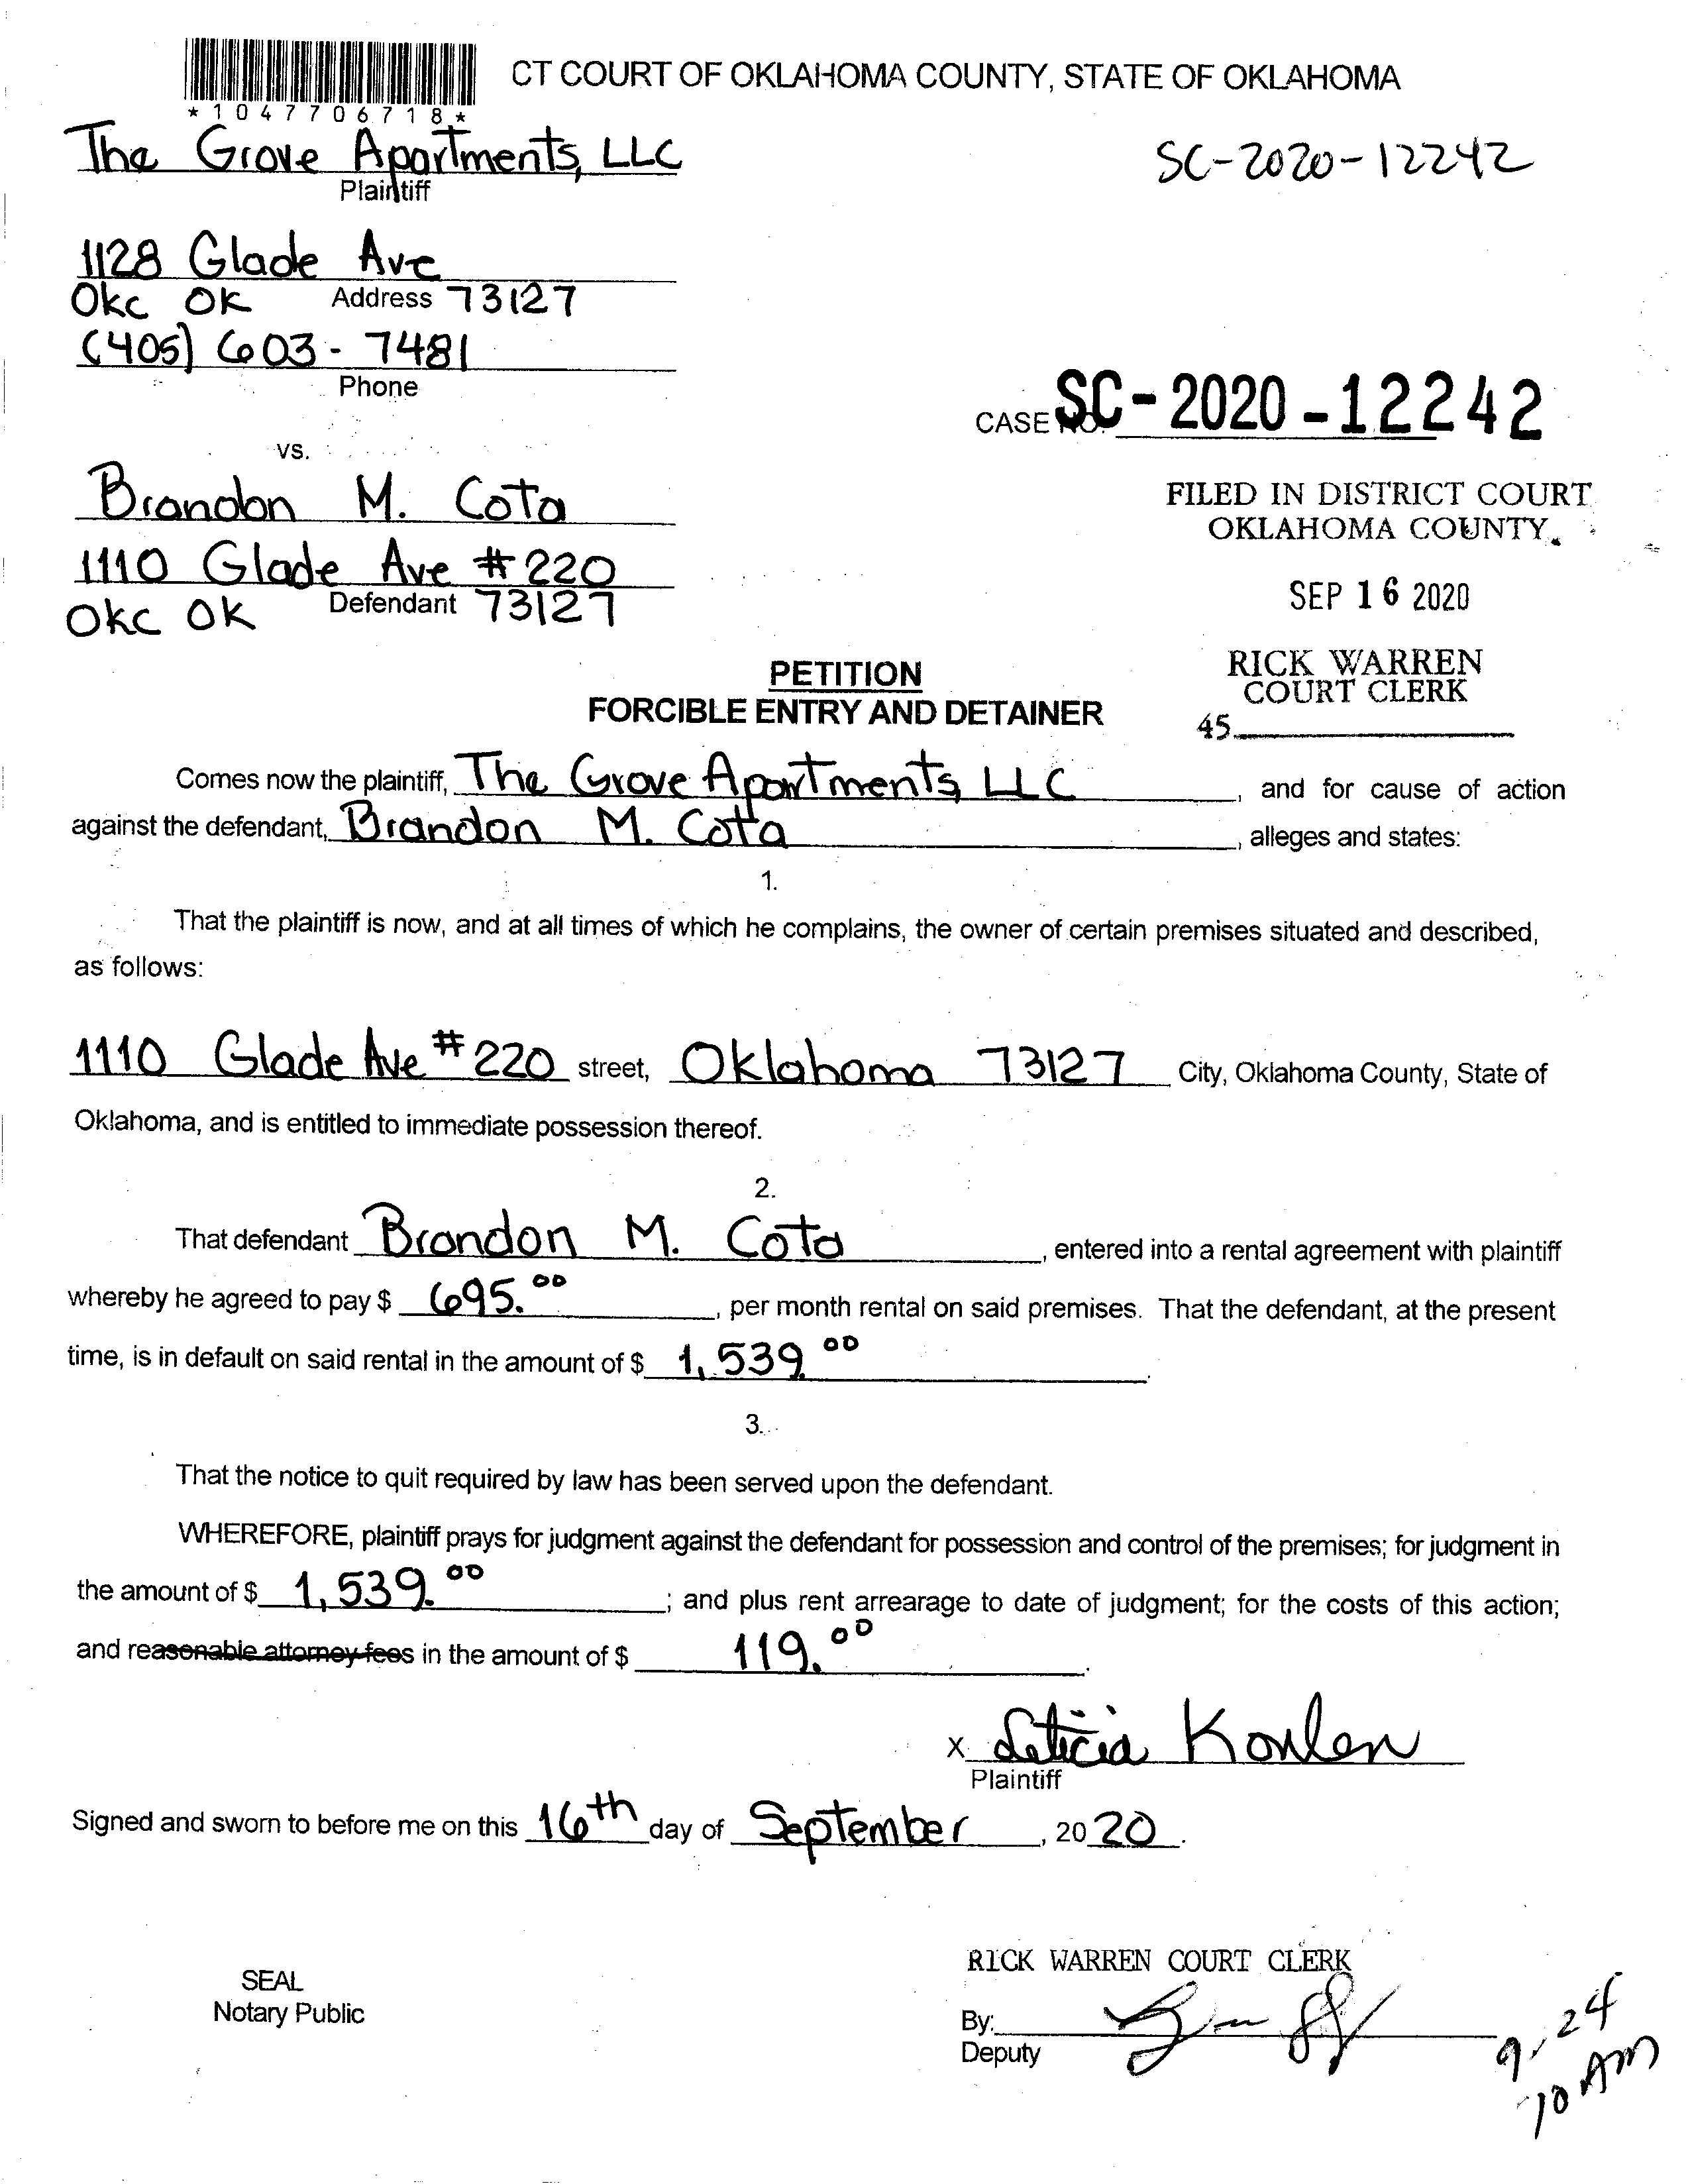 CT COURT OF OKLAHOMA COUNTY, STATE OF OKLAHOMA
*1047706718*
The Grove Apartments, LLC
Plaintiff
SC-2020-12242
1128 Glade Ave
Okc OK Address 73127
(405) 603-7481
Phone
CASE NO. SC-2020-12242
vs.
Brandon M. Cota
1110 Glade Ave #220
Okc OK Defendant 73127
FILED IN DISTRICT COURT
OKLAHOMA COUNTY.
SEP 16 2020
RICK WARREN
COURT CLERK
45
PETITION
FORCIBLE ENTRY AND DETAINER
Comes now the plaintiff, The Grove Apartments, LLC, and for cause of action
against the defendant, Brandon M. Cota, alleges and states:
1.
That the plaintiff is now, and at all times of which he complains, the owner of certain premises situated and described,
as follows:
1110 Glade Ave #220 street, Oklahoma 73127 City, Oklahoma County, State of
Oklahoma, and is entitled to immediate possession thereof.
2.
That defendant Brandon M. Cota, entered into a rental agreement with plaintiff
whereby he agreed to pay $ 695.00, per month rental on said premises. That the defendant, at the present
time, is in default on said rental in the amount of $ 1,539.00.
3.
That the notice to quit required by law has been served upon the defendant.
WHEREFORE, plaintiff prays for judgment against the defendant for possession and control of the premises; for judgment in
the amount of $ 1,539.00; and plus rent arrearage to date of judgment; for the costs of this action;
and reasonable attorney fees in the amount of $ 119.00.
X Leticia
Plaintiff
Signed and sworn to before me on this 16th day of September, 2020.
RICK WARREN COURT CLERK
SEAL
Notary Public
By:
Deputy
9.24
10 AM